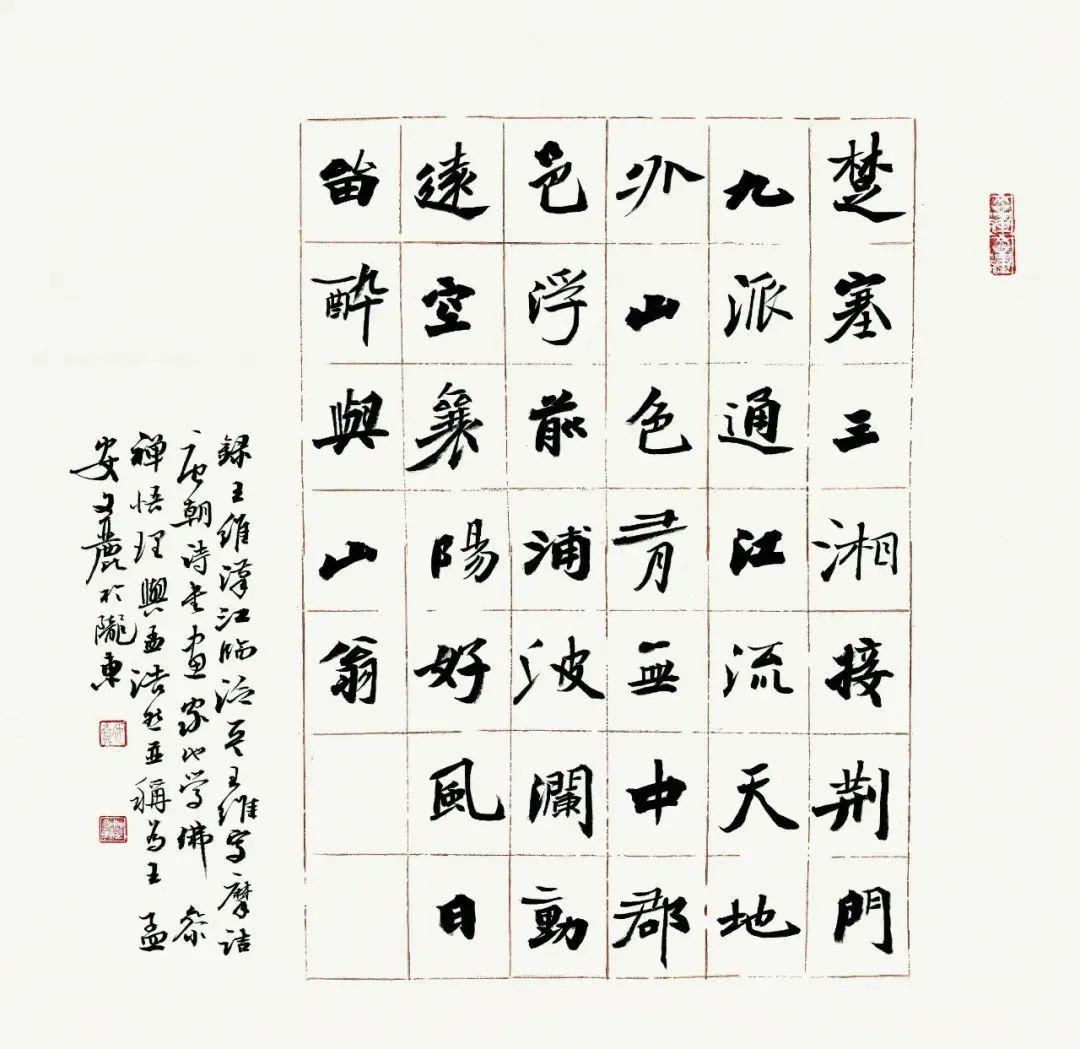 楚塞三湘接荆門
九派通江流天地
外山色有無中郡
邑浮前浦波瀾動
遠空襄陽好風日
留醉與山翁
録王維漢江臨泛 王維字摩詰
唐朝詩書畫家也學佛 參
禪悟理與孟浩然並稱為王 孟
安文麗於隴東